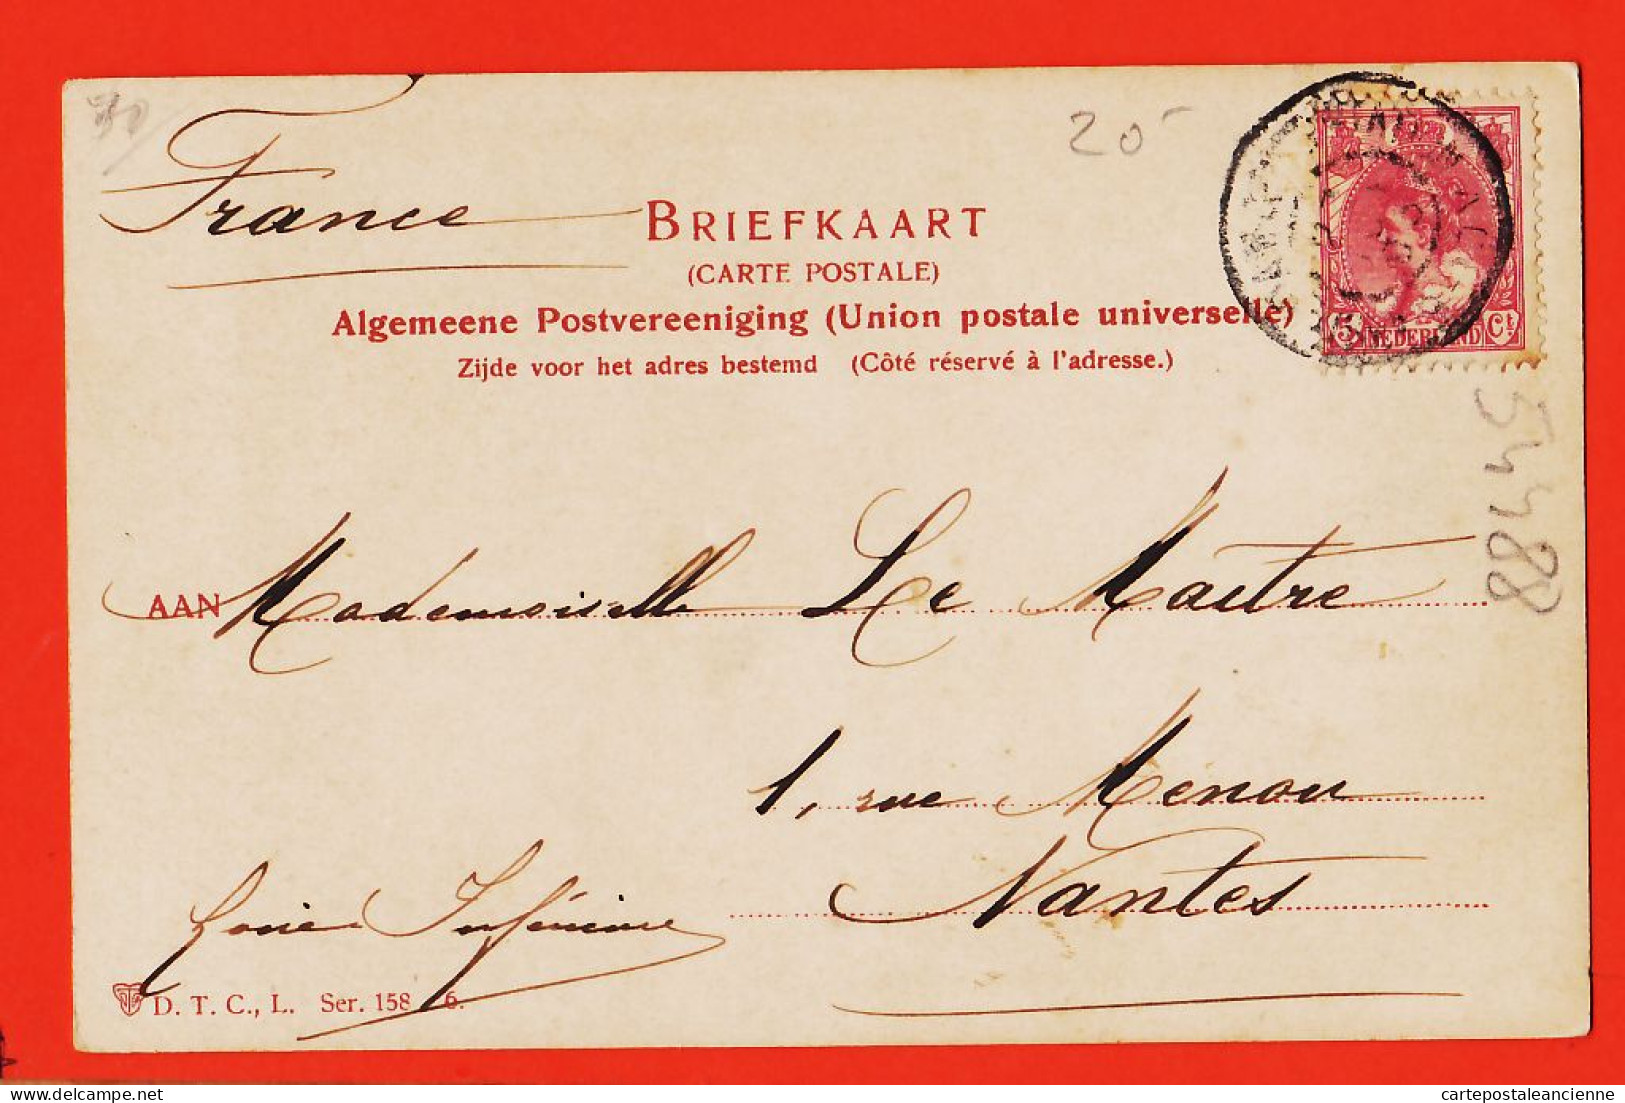 20-
France
BRIEFKAART
(CARTE POSTALE)
Algemeene Postvereeniging (Union postale universelle)
Zijde voor het adres bestemd (Côté réservé à l'adresse.)
5 NEDERLAND Ct
54488
AAN Mademoiselle Le Maitre
1, rue Menou
Nantes
Loire Inférieure
D. T. C., L. Ser. 158 6.
cartepostaleancienne